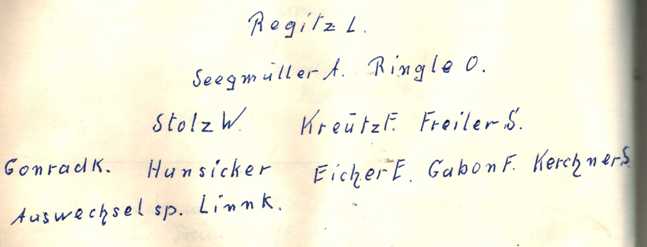 Regitz L.
Seegmüller A. Ringle O.
Stolz W. Kreutz F. Freiler S.
Conrad K. Hunsicker Eicher E. Gabon F. Kerchner S.
Auswechselsp. Linn K.